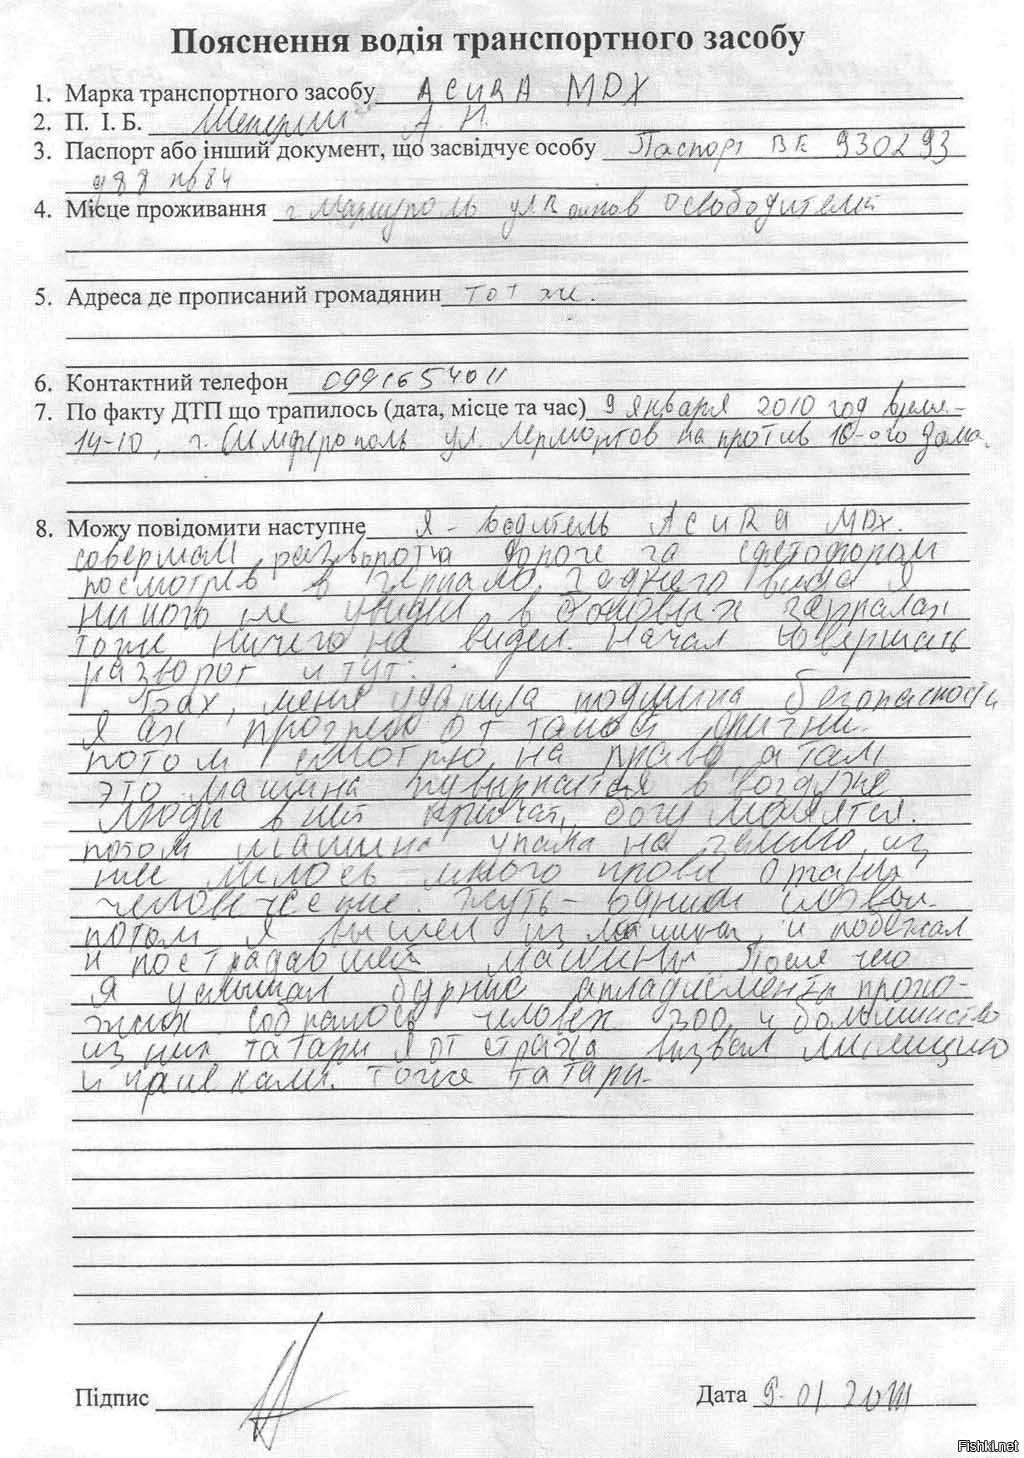 Пояснення водія транспортного засобу
1. Марка транспортного засобу ACURA MDX
2. П. І. Б. А. Н.
3. Паспорт або інший документ, що засвідчує особу Паспорт ВЕ 930293
4. Місце проживання г Мариуполь ул Воинов Освободителей
5. Адреса де прописаний громадянин тот же.
6. Контактний телефон 0991654011
7. По факту ДТП що трапилось (дата, місце та час) 9 января 2010 год время-
14-10, г. Симферополь ул. Лермонтов на против 16-ого дома.
8. Можу повідомити наступне Я - водитель Acura MDX.
совершал разворот на дороге за светофором
посмотрев в зеркало заднего вида я
ничего не увидел в боковых зеркалах
тоже ничего не видел. Начал совершать
разворот и тут:
Бах, меня ударила подушка безопасности
Я ах от такой
потом смотрю на право а там
это машина кувыркается в воздухе
Люди в ней кричат, богу молятся.
потом машина упала на землю, из
нее лилось много крови
человеческие. Жуть - одним словом.
потом я вышел из машины и побежал
к пострадавшей машины После чего
Я услышал бурные апладисменты прохо-
жих собралось человек 300 и большинство
из них татары я от страха вызвал милицию
и приехали. тоже татары.
Підпис
Дата 9. 01 20
Fishki.net